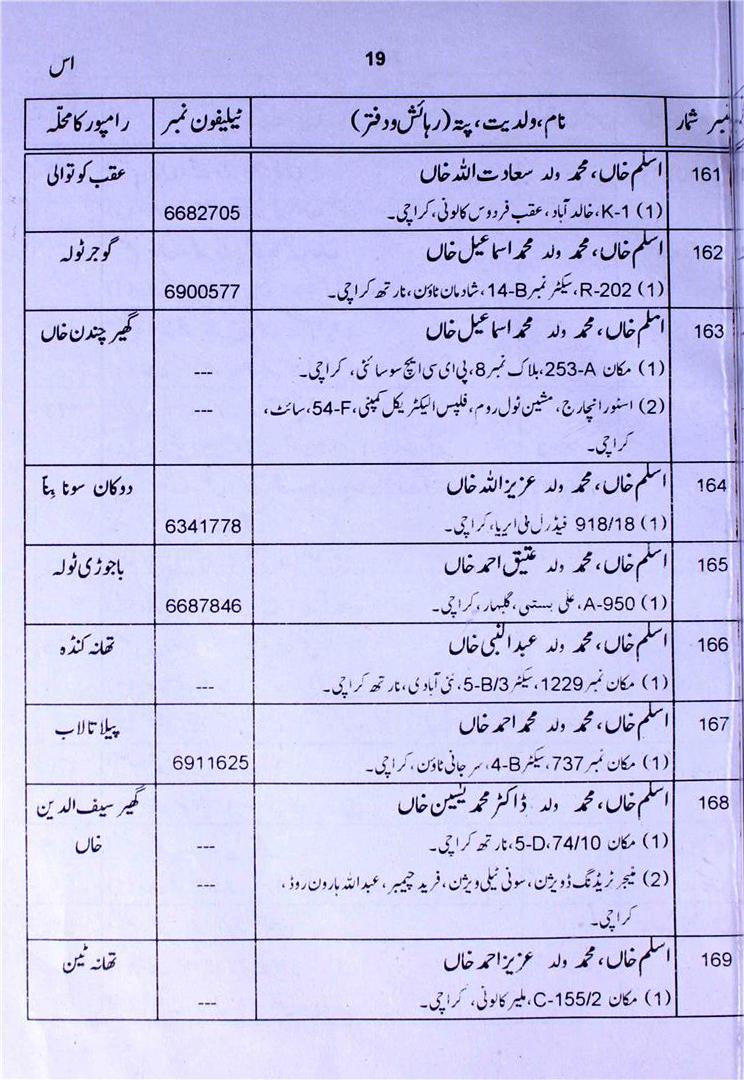 19
اس
نمبر شمار | نام، ولدیت، پتہ (رہائش و دفتر) | ٹیلیفون نمبر | رامپور کا محلّہ
161 | اسلم خاں، محمد ولد سعادت اللہ خاں | عقب کوتوالی
(1) K-1، خالد آباد، عقب فردوس کالونی، کراچی۔ | 6682705
162 | اسلم خاں، محمد ولد محمد اسماعیل خاں | گوجر ٹولہ
(1) R-202، سیکٹر نمبر 14-B، شادمان ٹاؤن، نارتھ کراچی۔ | 6900577
163 | اسلم خاں، محمد ولد محمد اسماعیل خاں | گھیر چندن خاں
(1) مکان 253-A، بلاک نمبر 8، پی ای سی ایچ سوسائٹی، کراچی۔ | ---
(2) اسٹور انچارج، مشین ٹول روم، فلپس الیکٹریکل کمپنی، F-54، سائٹ، | ---
کراچی۔
164 | اسلم خاں، محمد ولد عزیز اللہ خاں | دوکان سونا بٹا
(1) 918/18 فیڈرل بی ایریا، کراچی۔ | 6341778
165 | اسلم خاں، محمد ولد عتیق احمد خاں | باجوڑی ٹولہ
(1) A-950، علی بستی، گلبہار، کراچی۔ | 6687846
166 | اسلم خاں، محمد ولد عبدالنبی خاں | تھانہ کنڈہ
(1) مکان نمبر 1229، سیکٹر 5-B/3، نئی آبادی، نارتھ کراچی۔ | ---
167 | اسلم خاں، محمد ولد محمد احمد خاں | پیلا تالاب
(1) مکان نمبر 737، سیکٹر 4-B، سرجانی ٹاؤن، کراچی۔ | 6911625
168 | اسلم خاں، محمد ولد ڈاکٹر محمد یٰسین خاں | گھیر سیف الدین
(1) مکان 74/10، 5-D، نارتھ کراچی۔ | --- | خاں
(2) منیجر ٹریڈنگ ڈویژن، سونی ٹیلی ویژن، فرید چیمبر، عبداللہ ہارون روڈ، | ---
کراچی۔
169 | اسلم خاں، محمد ولد عزیز احمد خاں | تھانہ ٹین
(1) مکان C-155/2، ملیر کالونی، کراچی۔ | ---